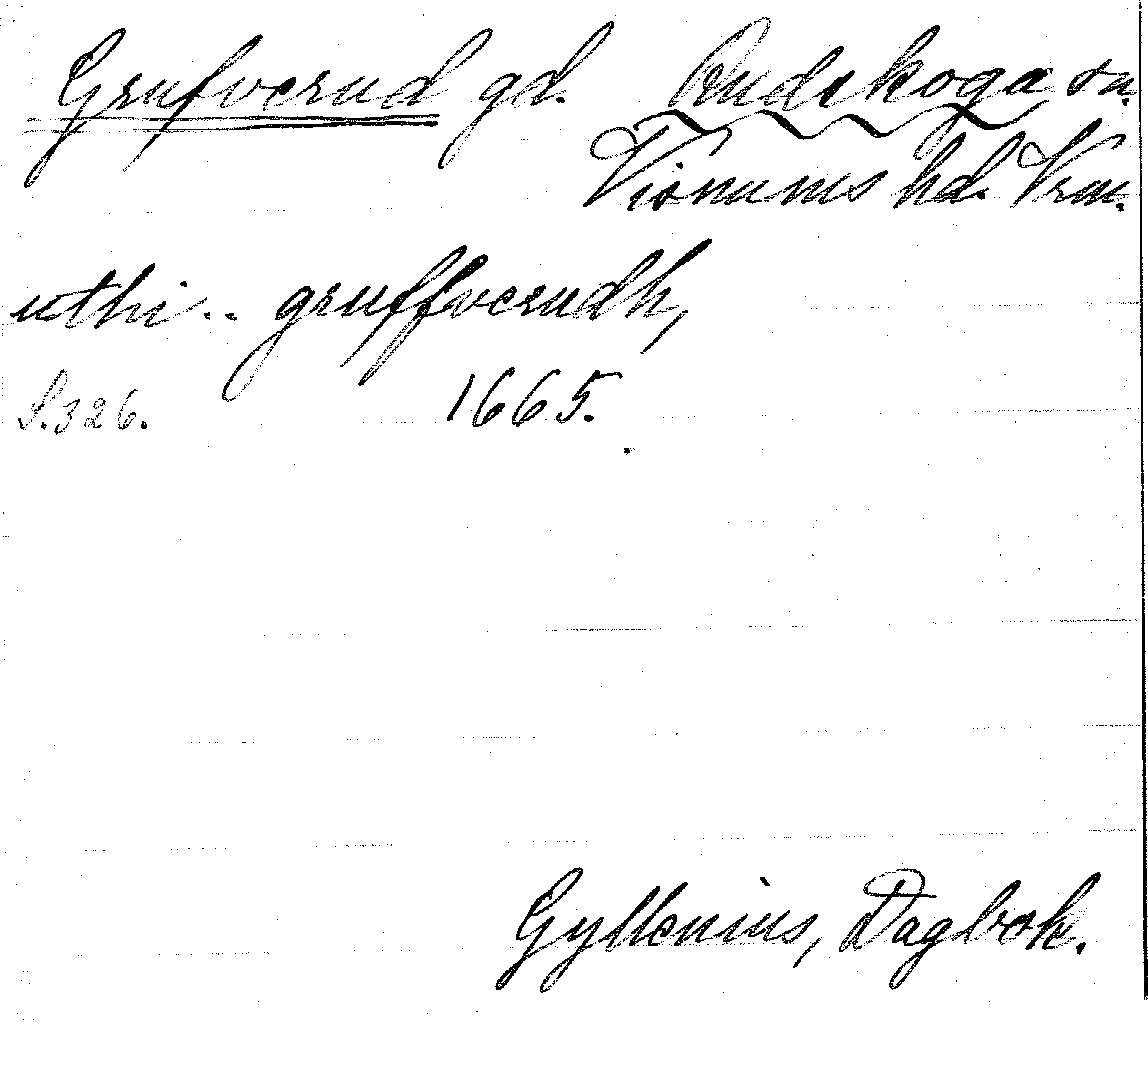 Grufverud gd. Rudskoga sn.
Visnums hd. Vrm.
uthi .. gruffverudh,
S.326. 1665.
Gyllenius, Dagbok.